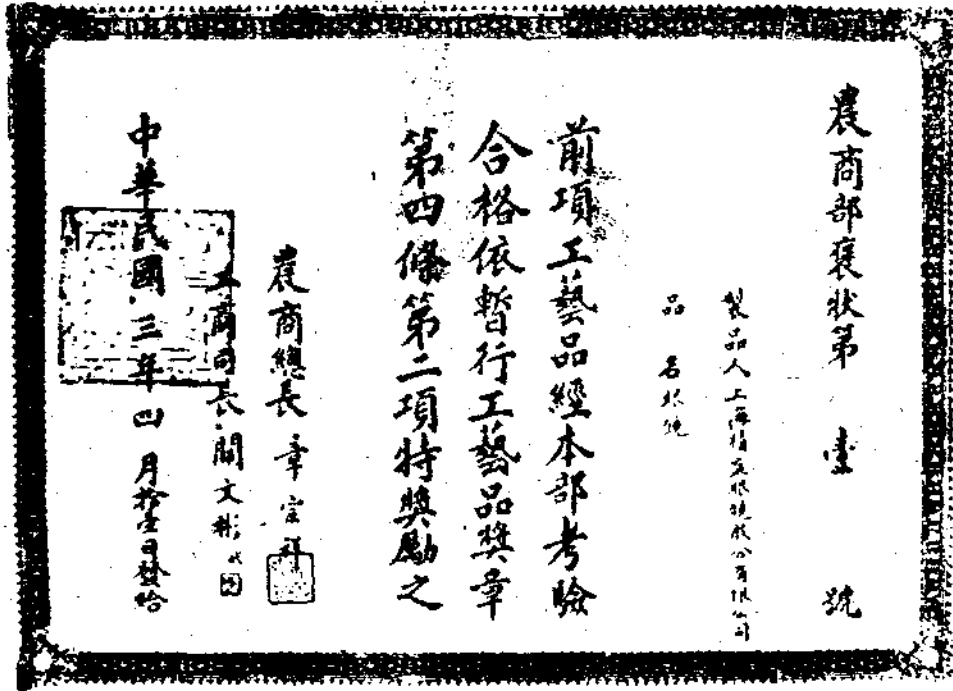 農商部褒狀第壹號
製品人上海精益眼鏡股份有限公司
品名眼鏡
前項工藝品經本部考驗
合格依暫行工藝品獎章
第四條第二項特獎勵之
農商總長章宗祥
工商司長閻文彬代
中華民國三年四月拾壹日發給